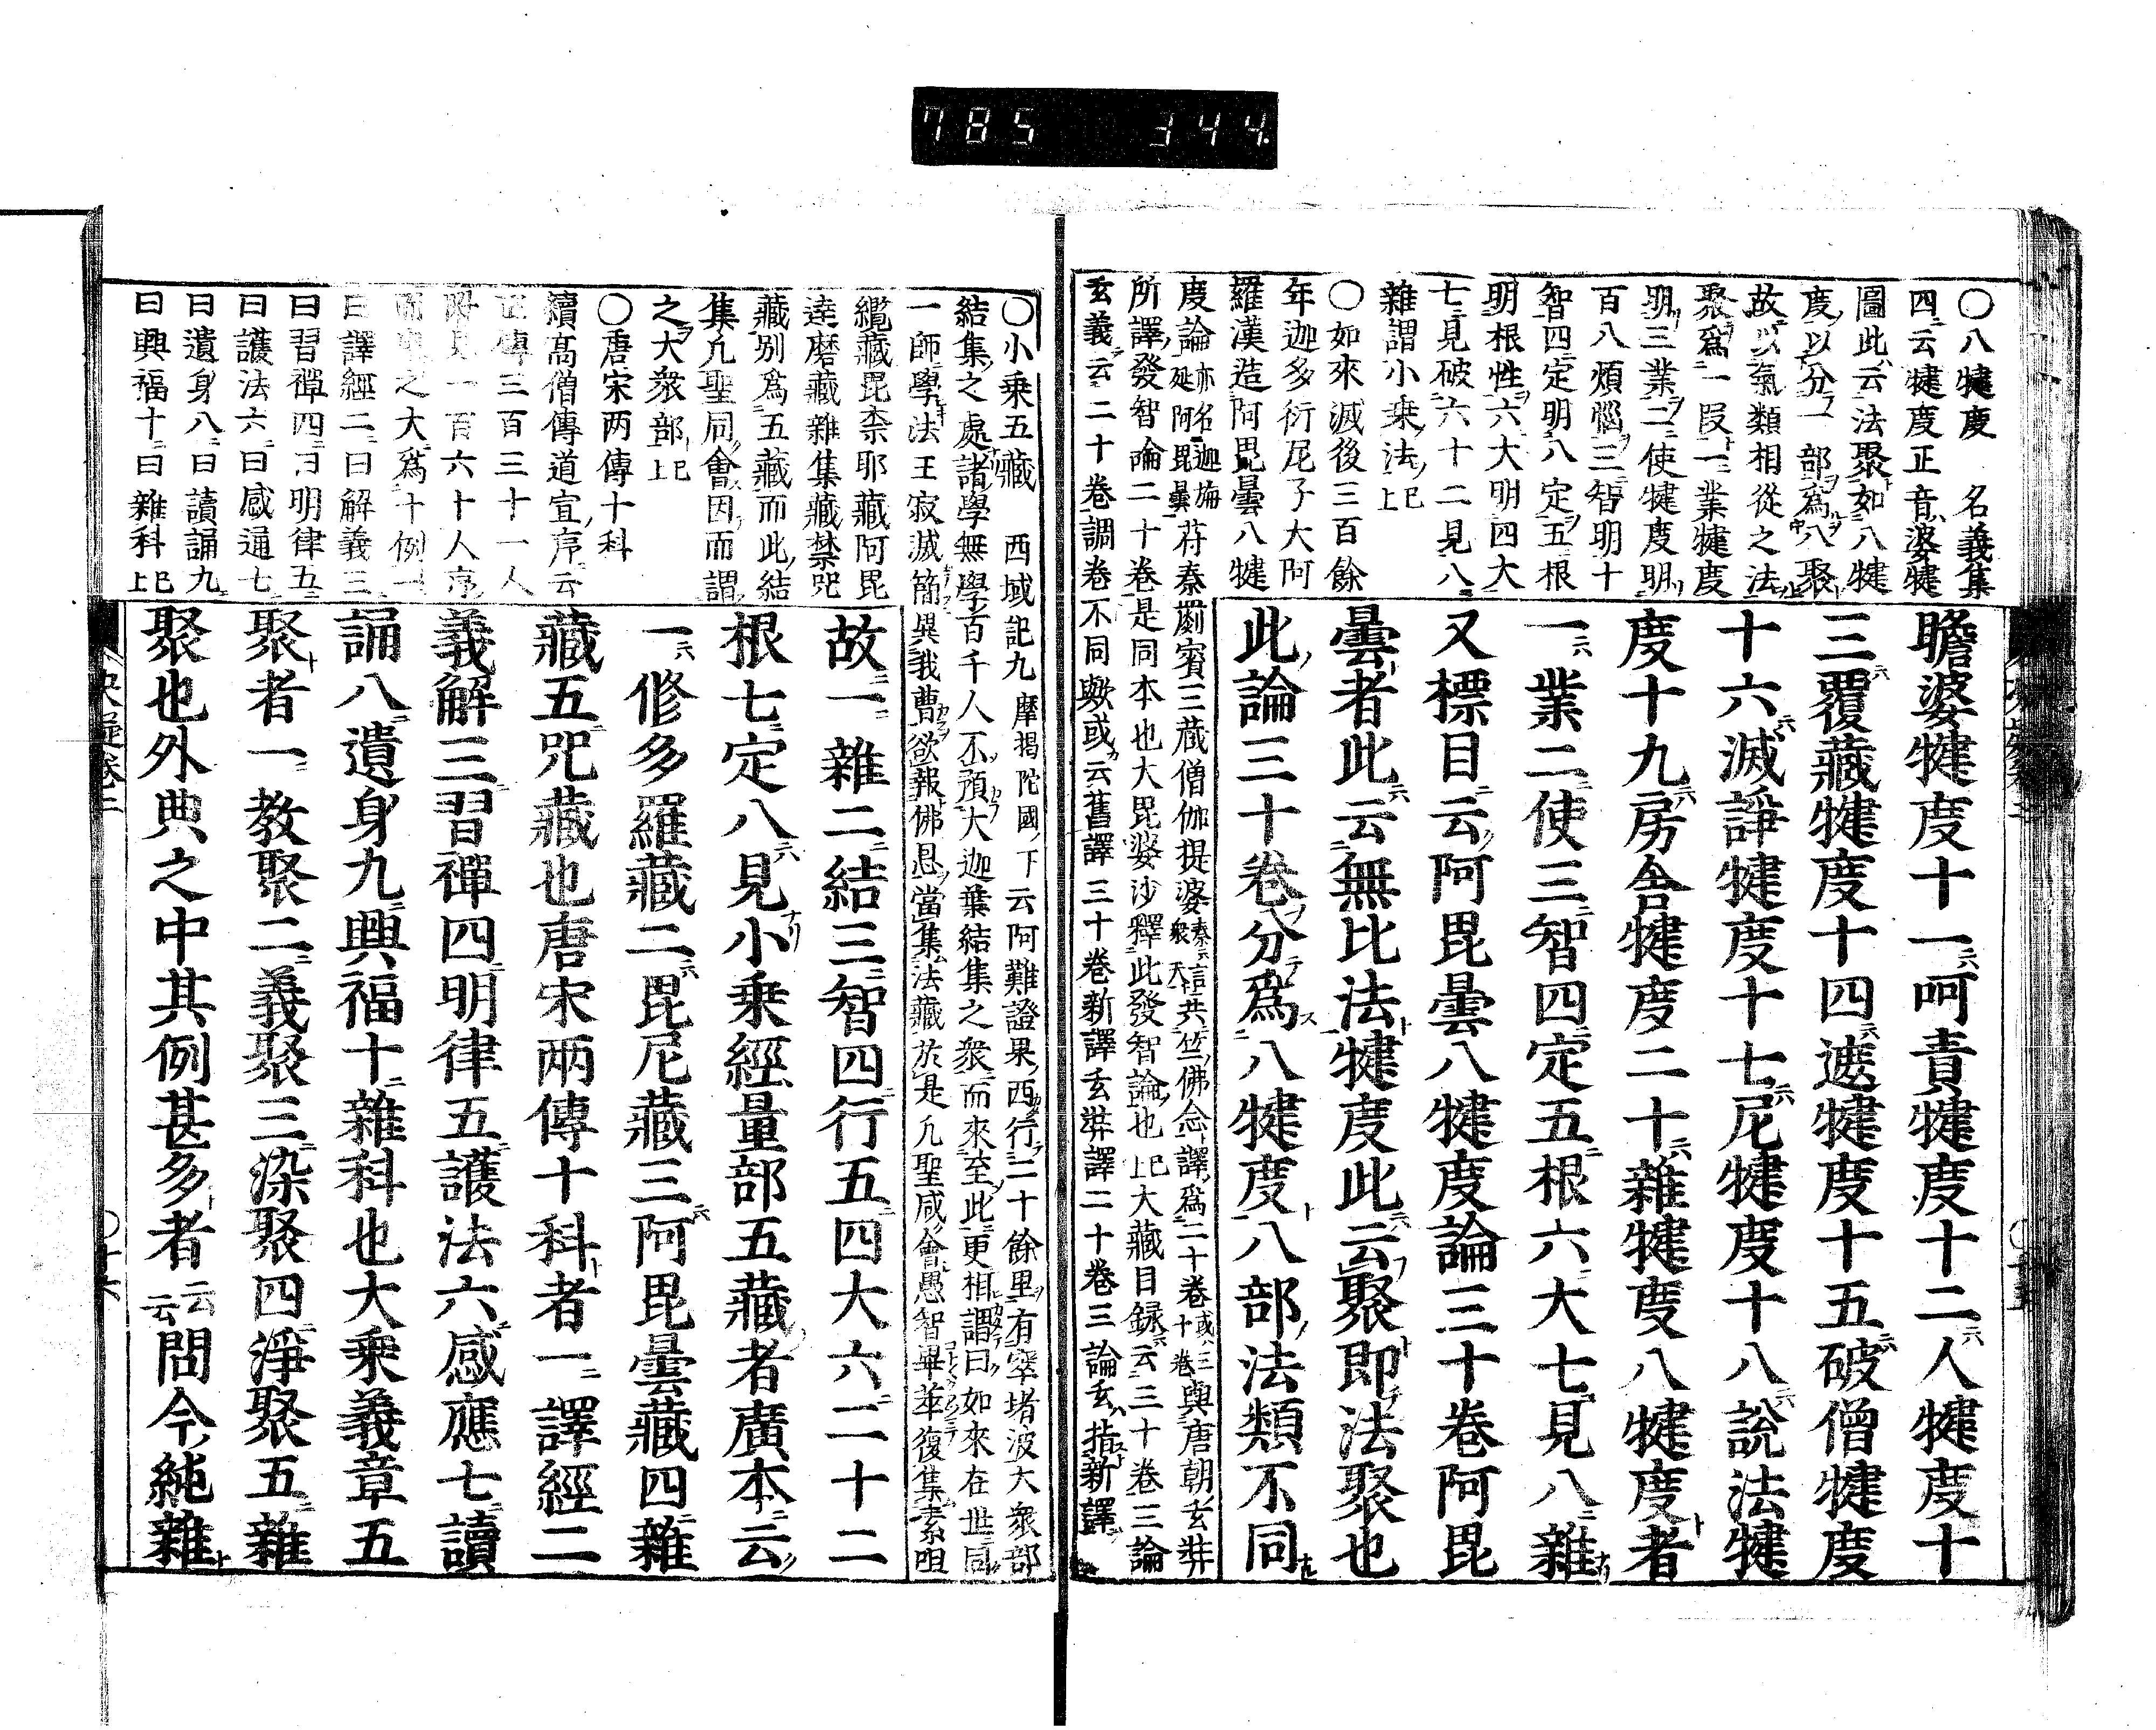 785 344.
〇八犍度 名義集
四云犍度正音婆犍
圖此云法聚如八犍
度以分一部為八聚
故以氣類相從之法
聚為一段一業犍度
明三業二使犍度明
百八煩惱三智明十
智四定明八定五根
明根性六大明四大
七見破六十二見八
雜謂小乘法已上
〇如來滅後三百餘
年迦多衍尼子大阿
羅漢造阿毘曇八犍
度論亦名迦旃延阿毘曇苻秦罽賓三藏僧伽提婆秦言衆天共竺佛念譯為二十卷或三十卷與唐朝玄奘
所譯發智論二十卷是同本也大毘婆沙釋此發智論也已上大藏目録云三十卷三論
玄義云二十卷調卷不同歟或云舊譯三十卷新譯玄奘譯二十卷三論玄指新譯
瞻婆犍度十一呵責犍度十二人犍度十
三覆藏犍度十四遮犍度十五破僧犍度
十六滅諍犍度十七尼犍度十八說法犍
度十九房舍犍度二十雜犍度八犍度者
一業二使三智四定五根六大七見八雜
又標目云阿毘曇八犍度論三十卷阿毘
曇者此云無比法犍度此云聚即法聚也
此論三十卷分為八犍度八部法類不同
〇小乘五藏 西域記九摩揭陀國下云阿難證果西行二十餘里有窣堵波大衆部
結集之處諸學無學百千人不預大迦葉結集之衆而來至此更相謂曰如來在世同
一師學法王寂滅簡異我曹欲報佛恩當集法藏於是凡聖咸會愚智畢萃復集素呾
纜藏毘柰耶藏阿毘
達磨藏雜集藏禁咒
藏別為五藏而此結
集凡聖同會因而謂
之大衆部已上
〇唐宋两傳十科
續高僧傳道宣序云
正傳三百三十一人
附見一百六十人序
而之大為十例一
曰譯經二曰解義三
曰習禪四曰明律五
曰護法六曰感通七
曰遺身八曰讀誦九
曰興福十曰雜科已上
故一雜二結三智四行五四大六二十二
根七定八見小乘經量部五藏者廣本云
一修多羅藏二毘尼藏三阿毘曇藏四雜
藏五咒藏也唐宋兩傳十科者一譯經二
義解三習禪四明律五護法六感應七讀
誦八遺身九興福十雜科也大乘義章五
聚者一教聚二義聚三染聚四淨聚五雜
聚也外典之中其例甚多者云云問今純雜
決疑卷二
〇十六